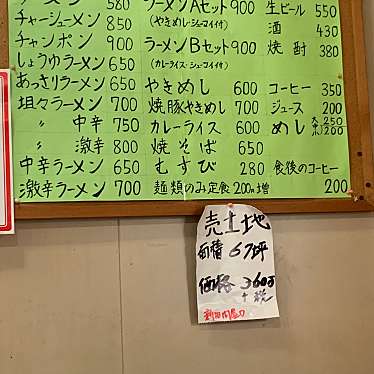 ラーメン 580
チャーシューメン 850
チャンポン 900
しょうゆラーメン 650
あっさりラーメン 650
坦々ラーメン 700
〃 中辛 750
〃 激辛 800
中辛ラーメン 650
激辛ラーメン 700
ラーメンAセット 900
(やきめし・シューマイ付)
ラーメンBセット 900
(カレーライス・シューマイ付)
やきめし 600
焼豚やきめし 700
カレーライス 600
焼そば 650
むすび 280
麺類のみ定食 200円増
生ビール 550
酒 430
焼酎 380
コーヒー 350
ジュース 200
めし 大 250
小 200
食後のコーヒー
200
売土地
面積 67坪
価格 360万
+税